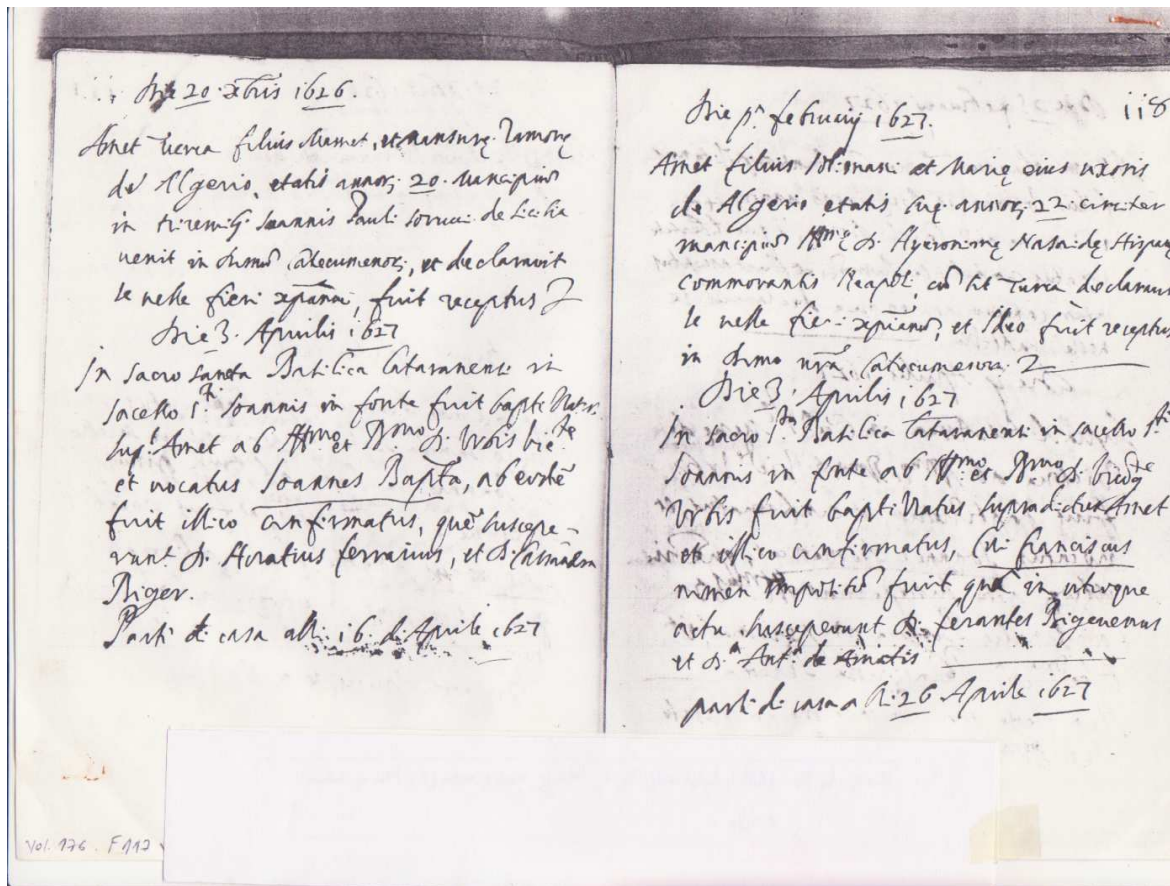 Die 20. xbris 1626.
Amet Turca filius Mamet, et Mansurę
de Algerio, etatis annor; 20. mancipiũ
in Ioannis Pauli de Sicilia
venit in domũ catecumenor; et declaravit
se velle fieri xp̃ianũ, fuit receptus
Die 3. Aprilis 1627
In sacro sancta Basilica Lataranensi in
sacello S.ti Ioannis in fonte fuit baptizatus
sup.s Amet ab Ill.mo et R.mo D. Urbis
et vocatus Ioannes Bapt̃a, ab eodẽ
fuit illico confirmatus, quẽ suscepe-
runt D. Horatius ferrarius, et D.
Riger.
Parti di casa alli 16. di Aprile 1627
118
Die p.a februarij 1627.
Amet filius et Marię eius uxoris
de Algerio etatis suę annor; 22 circiter
mancipiũ D. Hyeronimę
commorantis Neapoli, cũ sit Turca declaravit
se velle fieri xp̃ianũ, et ideo fuit receptus
in domo nr̃a Catecumenor;
Die 3. Aprilis 1627
In sacro S.ta Basilica Lataranensi in sacello S.ti
Ioannis in fonte ab Ill.mo et R.mo D.
Urbis fuit baptizatus supradictus Amet
et illico confirmatus, cui franciscus
nomen impositũ fuit quẽ in utroque
actu susceperunt D. ferantes
et D. Ant.s de Amatis
parti di casa a li 26 Aprile 1627
Vol. 176. F 117